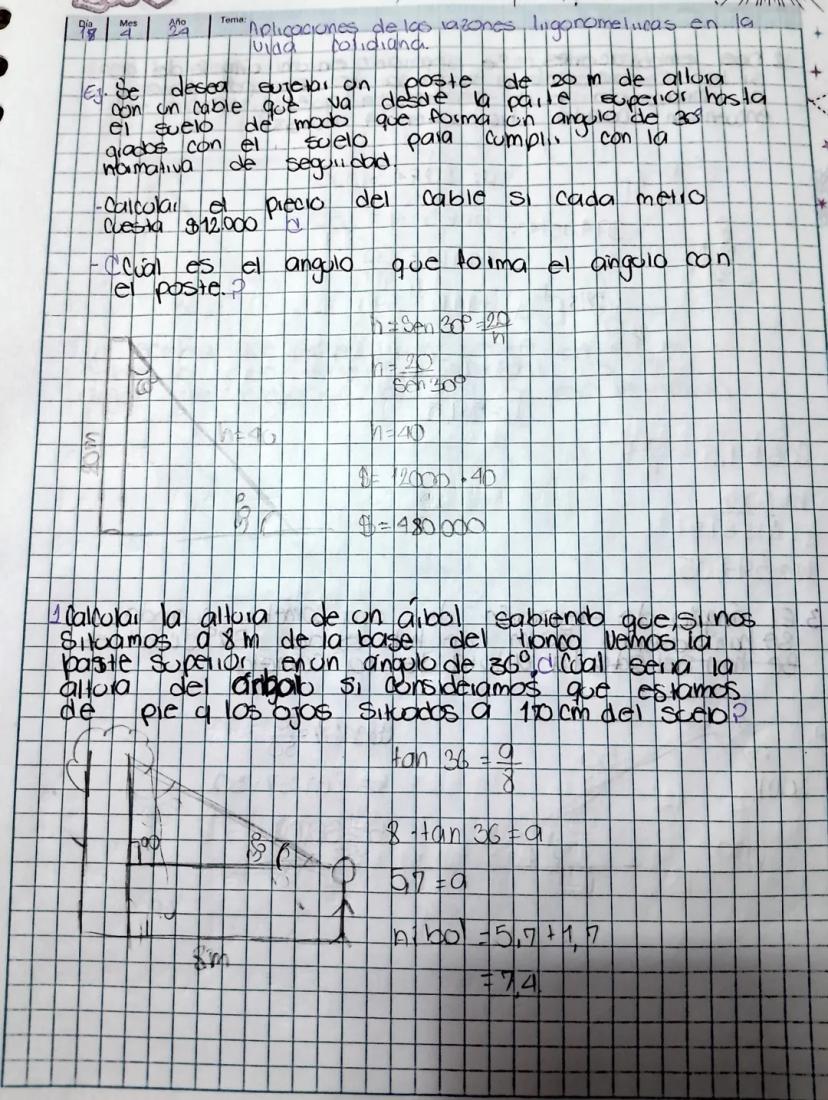 Día 18 Mes 4 Año 24 Tema: Aplicaciones de las razones trigonometricas en la
vida cotidiana.
Ej. Se desea sujetar un poste de 20 m de altura
con un cable que va desde la parte superior hasta
el suelo de modo que forma un angulo de 30°
grados con el suelo para cumplir con la
normativa de seguridad.
- Calcular el precio del cable si cada metro
cuesta $12.000
- ¿Cúal es el angulo que forma el angulo con
el poste.?
h = Sen 30° = 20/h
h = 20/Sen 30°
60°
h=40
h=40
20m
$ = 12000 · 40
30°
$ = 480000
1 Calcular la altura de un árbol sabiendo que, si nos
situamos a 8 m de la base del tronco vemos la
parte superior en un ángulo de 36°, ¿Cúal seria la
altura del árbol si consideramos que estamos
de pie y los ojos situados a 170 cm del suelo?
tan 36 = a/8
8 · tan 36 = a
5,7 = a
= 5,7 + 1,7
8m
= 7,4